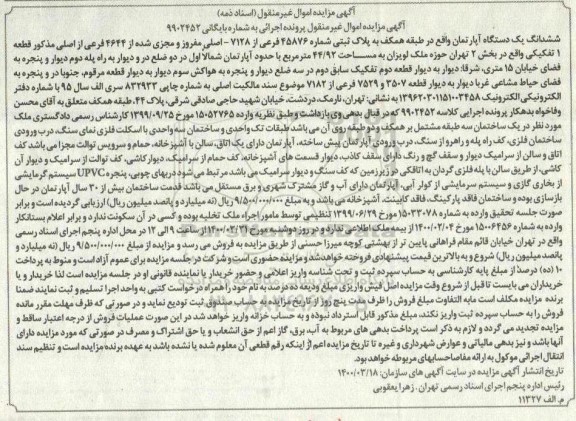 آگهی مزایده اموال غیرمنقول (اسناد ذمه)
آگهی مزایده اموال غیرمنقول پرونده اجرائی به شماره بایگانی ۹۹۰۲۴۵۲
ششدانگ یک دستگاه آپارتمان واقع در طبقه همکف به پلاک ثبتی شماره ۴۵۸۷۶ فرعی از ۷۱۲۸ - اصلی مفروز و مجزی شده از ۴۶۴۴ فرعی از اصلی مذکور قطعه
۱ تفکیکی واقع در بخش ۲ تهران حوزه ملک لویزان به مساحت ۴۴/۹۲ مترمربع با حدود آپارتمان شمالا اول در دو ضلع در و دیوار به راه پله دوم دیوار و پنجره به
فضای خیابان ۱۵ متری، شرقا: دیوار به دیوار قطعه دوم تفکیک سابق دوم در سه ضلع دیوار و پنجره به هواکش سوم دیوار به دیوار قطعه مرقوم، جنوبا در و پنجره به
فضای حیاط مشاعی غربا دیوار به دیوار قطعه ۳۵۰۷ و ۷۵۲۹ فرعی از ۷۱۸۲ موضوع سند مالکیت اصلی به شماره چاپی ۸۳۲۹۳۳ سری الف سال ۹۵ با شماره دفتر
الکترونیکی الکترونیک ۱۳۹۶۲۰۳۰۱۱۵۱۰۰۳۴۵۸ به نشانی: تهران، نارمک، دردشت، خیابان شهید حاجی صادقی شرقی، پلاک ۴۴، طبقه همکف متعلق به آقای محسن
وفاخواه بدهکار پرونده اجرایی کلاسه ۹۹۰۲۴۵۲ که در قبال بدهی وی بازداشت و طبق نظریه وارده ۱۵۰۵۲۷۶۵ مورخ ۱۳۹۹/۰۹/۲۵ کارشناس رسمی دادگستری ملک
مورد نظر در یک ساختمان سه طبقه مشتمل بر همکف و دو طبقه روی آن می باشد طبقات تک واحدی و ساختمان سه واحدی با اسکلت فلزی نمای سنگ، درب ورودی
ساختمان فلزی، کف راه پله و راهرو از سنگ، درب ورودی آپارتمان پیش ساخته، آپارتمان دارای یک اتاق، سالن با آشپزخانه، حمام و سرویس توالت مجزا می باشد کف
اتاق و سالن از سرامیک دیوار و سقف گچ و رنگ دارای سقف کاذب، دیوار قسمت های آشپزخانه، کف حمام از سرامیک، دیوار کاشی، کف توالت از سرامیک و دیوار آن
کاشی، از طریق سالن با پله فلزی گردان به اتاقکی در زیرزمین که کف سنگ و دیوار سرامیک می باشد مرتبط می شود دربهای چوبی، پنجره UPVC سیستم گرمایشی
از بخاری گازی و سیستم سرمایشی از کولر آبی، آپارتمان دارای آب و گاز مشترک شهری و برق مستقل می باشد قدمت ساختمان بیش از ۳۰ سال آپارتمان در حال
بازسازی بوده و ساختمان فاقد پارکینگ، فاقد کابینت، آشپزخانه می باشد و به مبلغ ۹/۵۰۰/۰۰۰/۰۰۰ ریال (نه میلیارد و پانصد میلیون ریال) ارزیابی گردیده است و برابر
صورت جلسه تحقیق وارده به شماره ۱۵۰۳۳۰۷۸ مورخ ۱۳۹۹/۰۶/۲۹ تنظیمی توسط مامور اجراء ملک تخلیه بوده و کسی در آن سکونت ندارد و برابر اعلام بستانکار
وارده به شماره ۱۵۰۰۶۴۵۶ مورخ ۱۴۰۰/۰۲/۰۴ از بیمه ملک اطلاعی ندارد و در روز دوشنبه مورخ ۱۴۰۰/۰۳/۳۱ از ساعت ۹ الی ۱۲ در محل اداره پنجم اجرای اسناد رسمی
واقع در تهران خیابان قائم مقام فراهانی پایین تر از بهشتی کوچه میرزا حسنی از طریق مزایده به فروش می رسد و مزایده از مبلغ ۹/۵۰۰/۰۰۰/۰۰۰ ریال (نه میلیارد و
پانصد میلیون ریال) شروع و به بالاترین قیمت پیشنهادی فروخته خواهد شد و مزایده حضوری است و شرکت در جلسه مزایده برای عموم آزاد است و منوط به پرداخت
۱۰ (ده) درصد از مبلغ پایه کارشناسی به حساب سپرده ثبت و تحت شناسه واریز اعلامی و حضور خریدار یا نماینده قانونی او در جلسه مزایده است لذا خریدار و یا
خریداران می بایست تا قبل از شروع وقت مزایده اصل فیش واریزی مبلغ ودیعه ده درصد به نام خود را همراه درخواست کتبی به واحد اجرا تسلیم و ثبت نمایند ضمنا
برنده مزایده مکلف است مابه التفاوت مبلغ فروش را ظرف مدت پنج روز از تاریخ مزایده به حساب صندوق ثبت تودیع نماید و در صورتی که ظرف مهلت مقرر مانده
فروش را به حساب سپرده ثبت واریز نکند، مبلغ مذکور قابل استرداد نبوده و به حساب خزانه واریز خواهد شد در این صورت عملیات فروش از درجه اعتبار ساقط و
مزایده تجدید می گردد و لازم به ذکر است پرداخت بدهی های مربوط به آب، برق، گاز اعم از حق انشعاب و یا حق اشتراک و مصرف در صورتی که مورد مزایده دارای
آنها باشد و نیز بدهی مالیاتی و عوارض شهرداری و غیره تا تاریخ مزایده اعم از اینکه رقم قطعی آن معلوم شده یا نشده باشد به عهده برنده مزایده است و تنظیم سند
انتقال اجرائی موکول به ارائه مفاصاحسابهای مربوطه خواهد بود.
تاریخ انتشار آگهی مزایده در سایت آگهی های سازمان: ۱۴۰۰/۰۳/۱۸
رئیس اداره پنجم اجرای اسناد رسمی تهران. زهرا یعقوبی
م. الف ۱۱۳۲۷